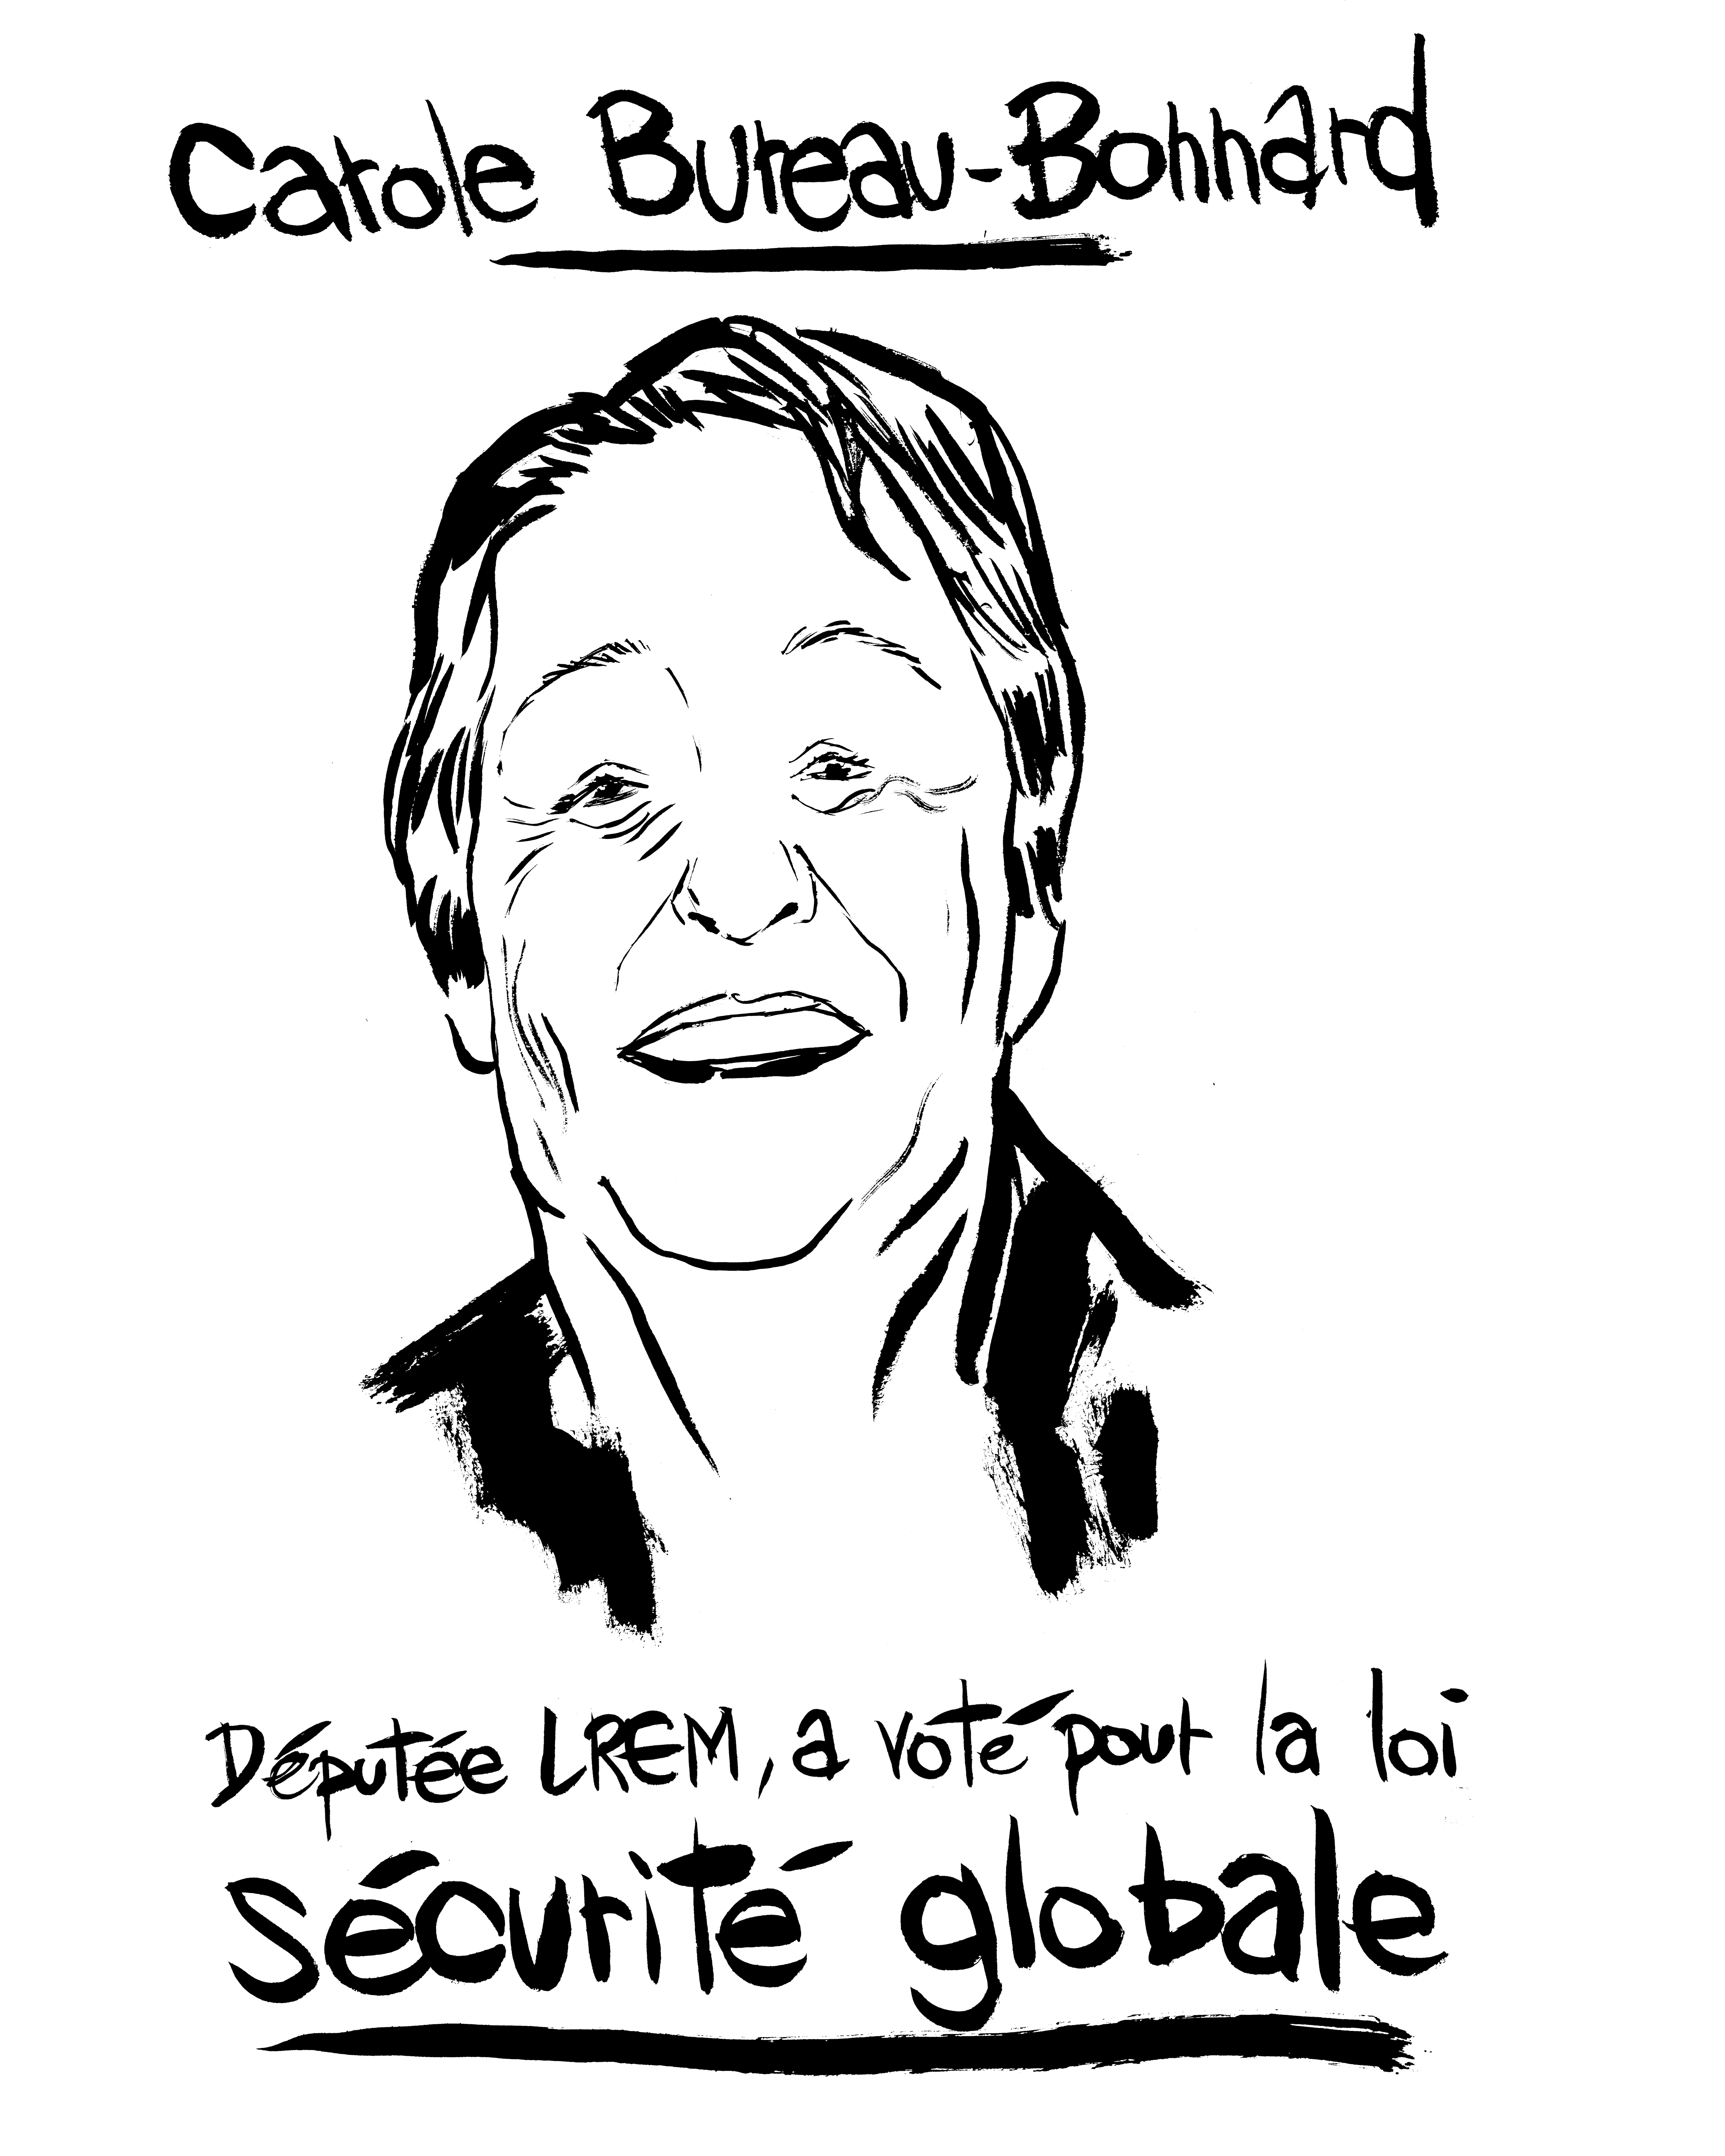 Carole Bureau-Bonnard
Députée LREM, a voté pour la loi
sécurité globale